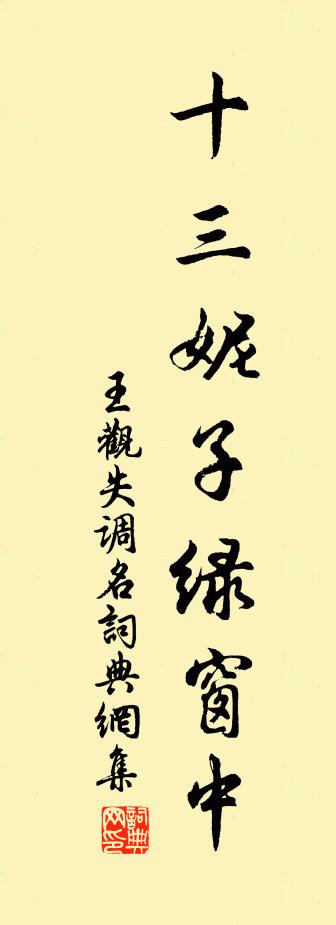 十三妮子绿窗中
王觀失调名詞典網集
詞典网印